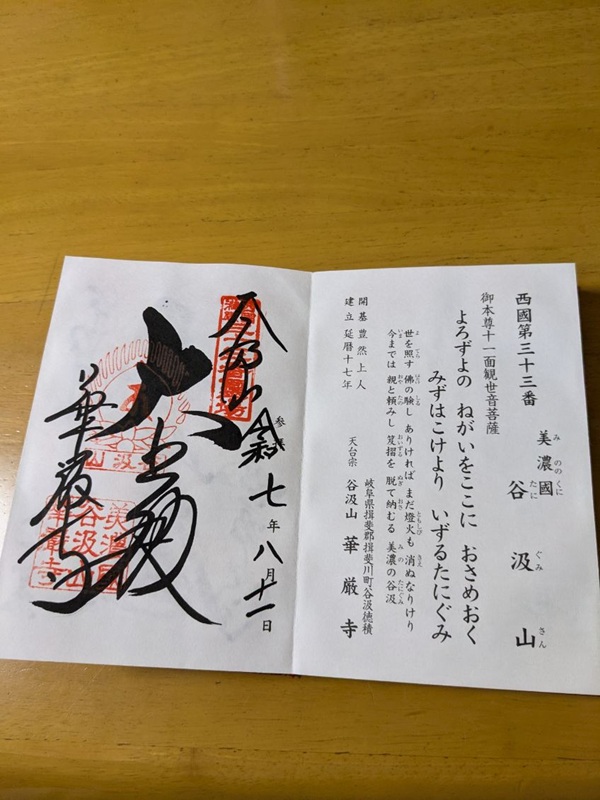 西國第三十三番
美濃國 谷汲山
みののくに たにぐみさん
御本尊十一面観世音菩薩
よろずよの ねがいをここに おさめおく
みずはこけより いずるたにぐみ
世を照す 佛の験し ありければ まだ燈火も 消ぬなりけり
今までは 親と頼みし 笈摺を 脱て納むる 美濃の谷汲
開基 豊然上人
建立 延暦十七年
岐阜県揖斐郡揖斐川町谷汲徳積
天台宗 谷汲山 華厳寺
奉拝
令和七年八月十一日
大悲殿
華厳寺